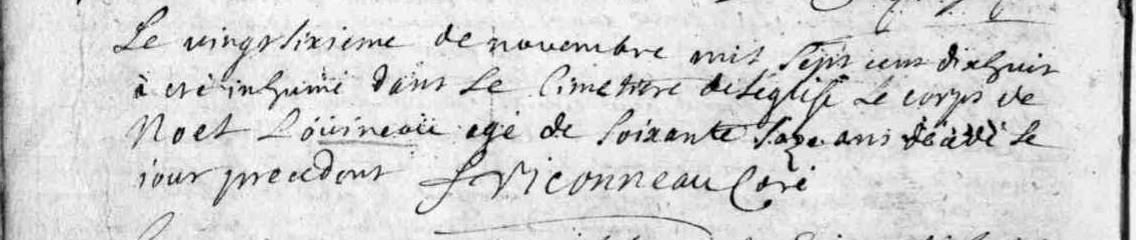 Le vingt sixieme de novembre mil sept cent dixhuit
à eté inhumé dans le Cimetiere de l'églisse le corps de
Noel Loüineaü agé de soixante ans décédé le
jour precedent Viconneau Curé